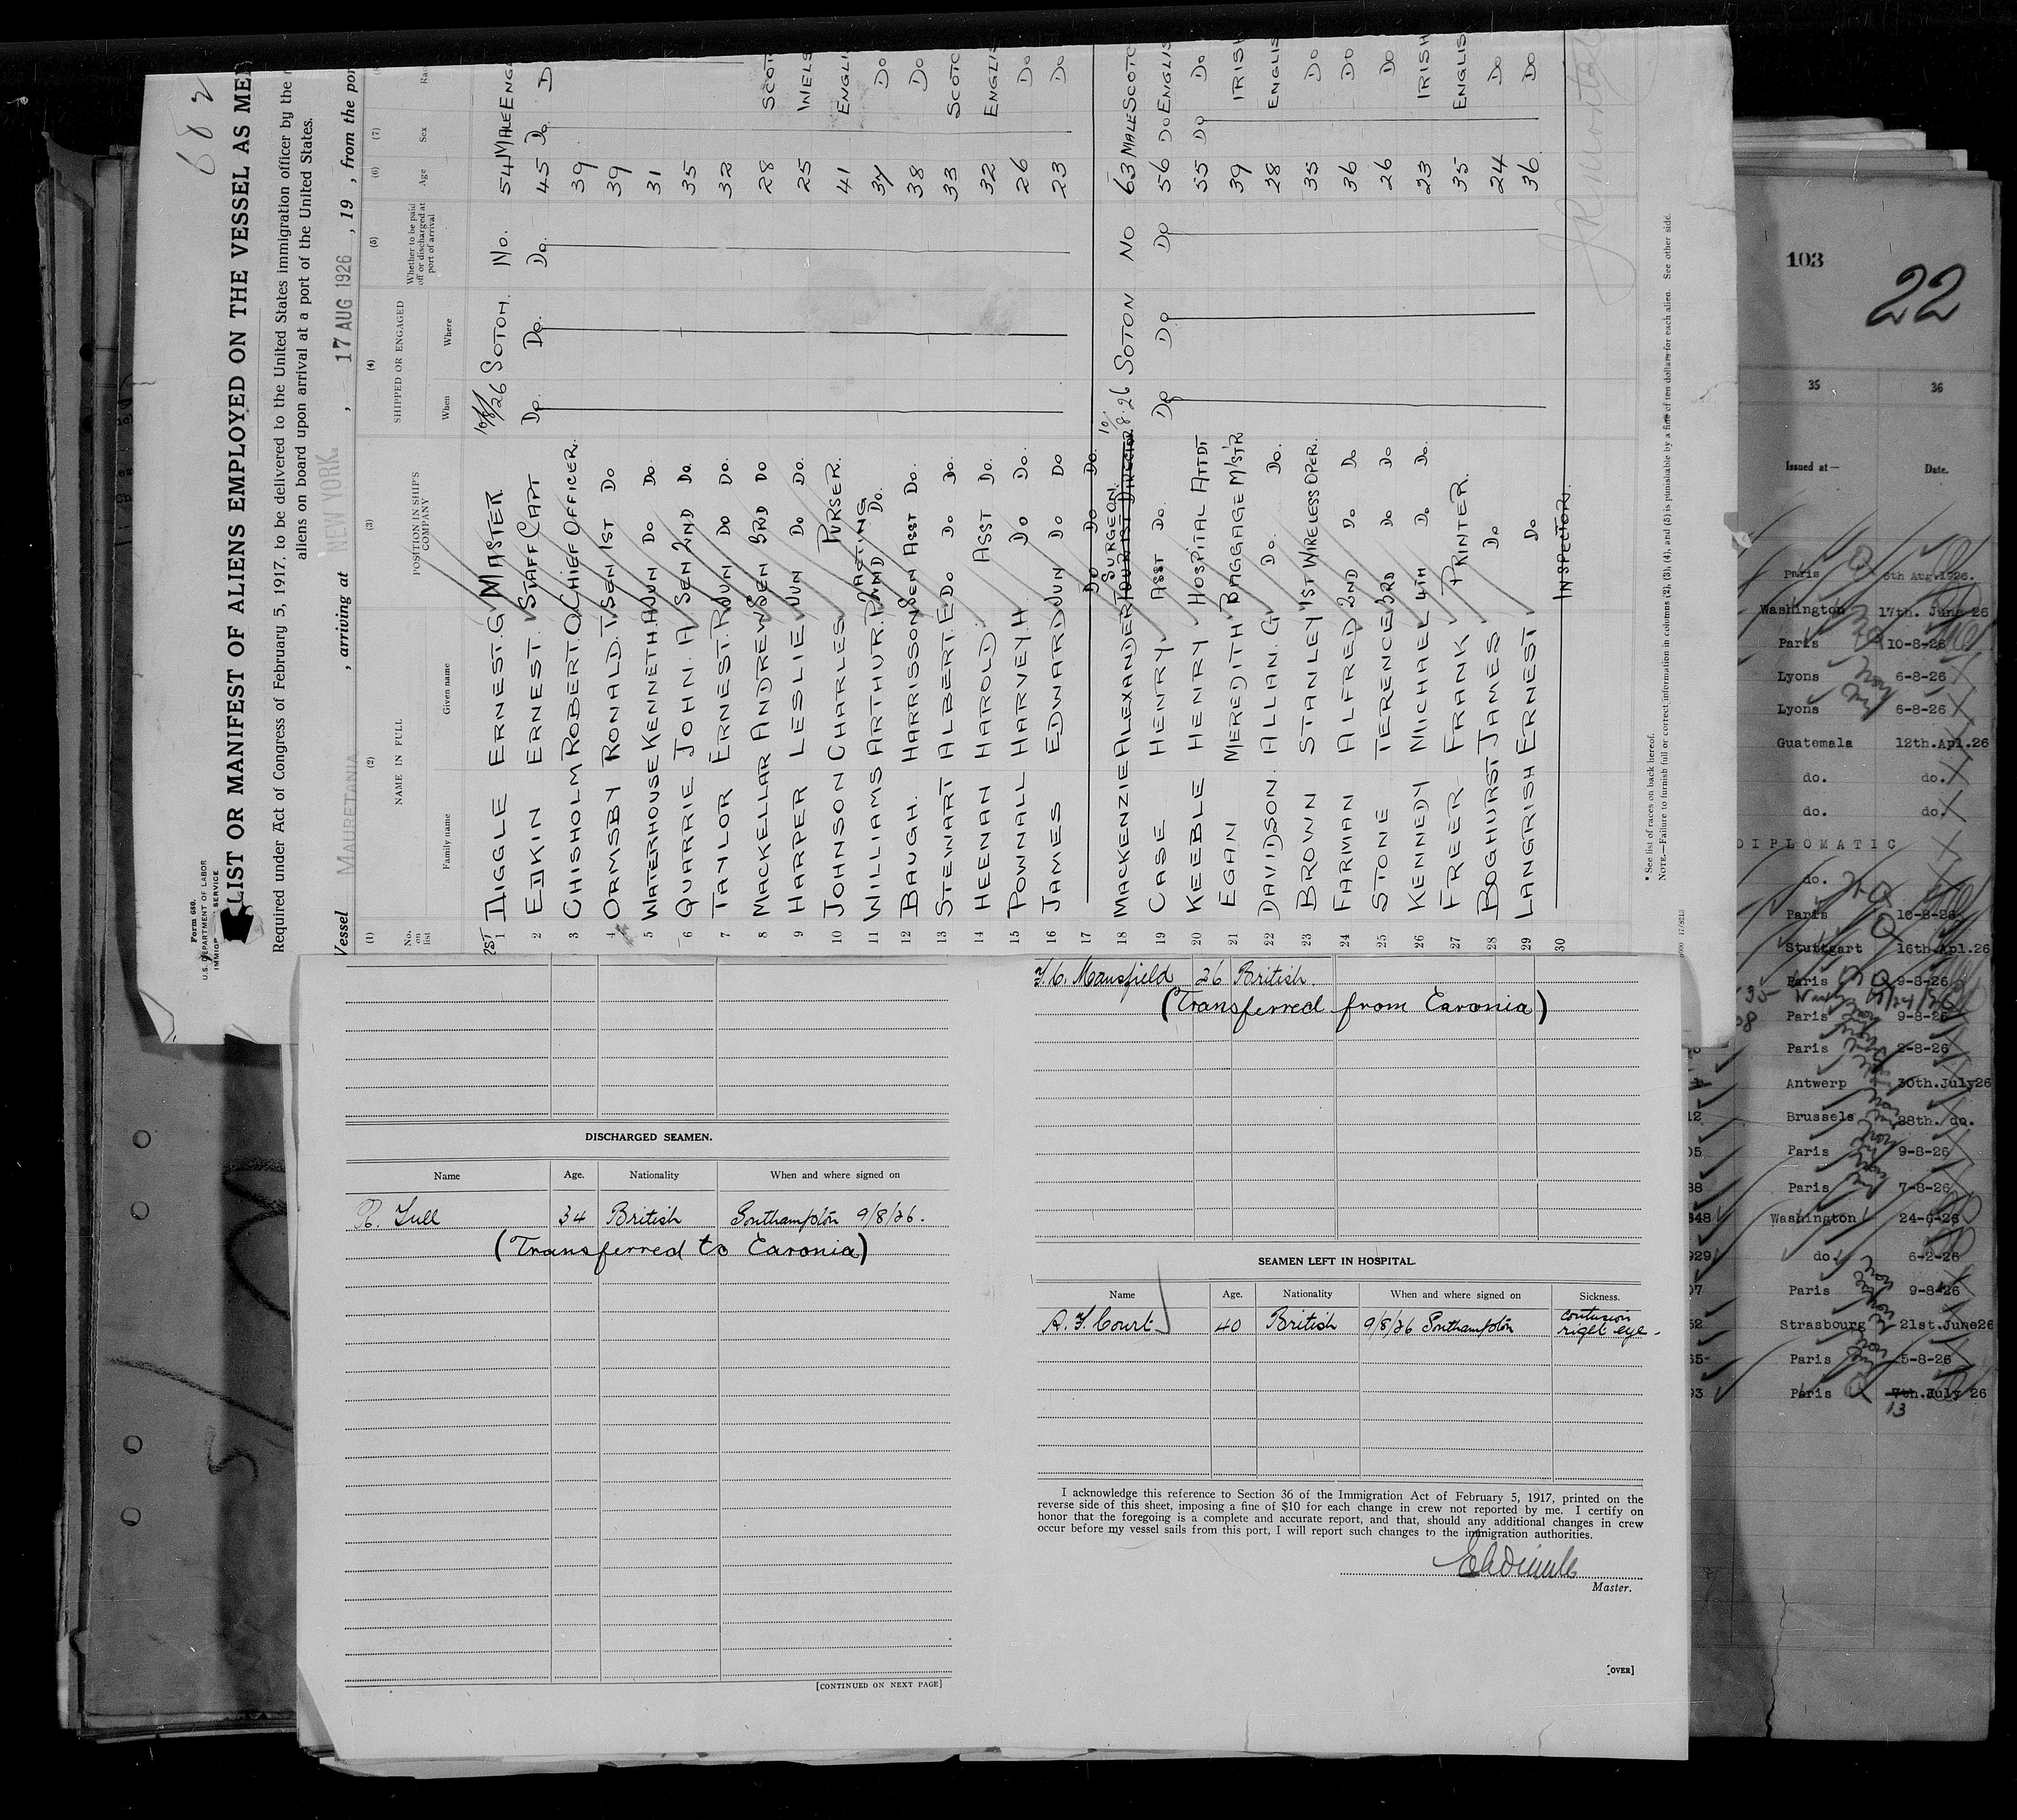 682
Form 680.
U.S. DEPARTMENT OF LABOR
SERVICE
LIST OR MANIFEST OF ALIENS EMPLOYED ON THE VESSEL AS
Required under Act of Congress of February 5, 1917, to be delivered to the United States immigration officer by the
aliens on board upon arrival at a port of the United States.
Vessel MAURETANIA , arriving at NEW YORK. , 17 AUG 1926 , 19 , from the
(1) (2) (3) (4) (5) (6) (7)
No. on list NAME IN FULL Family name Given name POSITION IN SHIP'S COMPANY SHIPPED OR ENGAGED When Where Whether to be paid off or discharged at port of arrival Age Sex
1 DIGGLE ERNEST. G MASTER 10/8/26 SOTON. No. 54 MALE ENG
2 ERNEST. STAFF CAPT Do. Do. Do. 45 Do. D
3 CHISHOLM ROBERT. O CHIEF OFFICER. 39
4 ORMSBY RONALD. T SEN 1ST Do 39
5 WATERHOUSE KENNETH. A JUN Do Do. 31
6 QUARRIE JOHN. A SEN 2ND Do. 35
7 TAYLOR ERNEST. R JUN Do Do. 32
8 MACKELLAR ANDREW SEN 3RD Do 28 SCOT
9 HARPER LESLIE JUN Do Do. 25 WELS
10 JOHNSON CHARLES PURSER. 41 ENGLI
11 WILLIAMS ARTHUR. P 2ND ACTING Do. 37 Do
12 BAUGH. HARRISON SEN ASST Do. 38 Do
13 STEWART ALBERT. E Do Do Do. 33 SCOTC
14 HEENAN HAROLD. ASST Do. 32 ENGLIS
15 POWNALL HARVEY. H Do Do. 26 Do
16 JAMES EDWARD JUN Do Do 23 Do
17 Do Do Do.
18 MACKENZIE ALEXANDER TOURIST DIRECTOR SURGEON. 10/8.26 SOTON NO 63 MALE SCOTC
19 CASE HENRY ASST Do. Do Do Do 56 Do ENGLIS
20 KEEBLE HENRY HOSPITAL ATTDT 55 Do Do
21 EGAN MEREDITH BAGGAGE M/STR 39 IRISH
22 DAVIDSON. ALLAN. G Do. Do. 28 ENGLIS
23 BROWN STANLEY 1ST WIRELESS OPER. 35 Do
24 FARMAN ALFRED 2ND Do Do 36 Do
25 STONE TERENCE 3RD Do Do 26 Do
26 KENNEDY MICHAEL 4TH Do Do. 23 IRISH
27 FREER FRANK PRINTER. 35 ENGLIS
28 BOGHURST JAMES Do 24 Do
29 LANGRISH ERNEST Do 36 Do
30 INSPECTOR.
* See list of races on back hereof.
NOTE.—Failure to furnish full or correct information in columns (2), (3), (4), and (5) is punishable by a fine of ten dollars for each alien. See other side.
DISCHARGED SEAMEN.
Name Age. Nationality When and where signed on
34 British Southampton 9/8/26.
(Transferred to Caronia)
[CONTINUED ON NEXT PAGE]
Mansfield 26 British.
(Transferred from Caronia)
SEAMEN LEFT IN HOSPITAL.
Name Age. Nationality When and where signed on Sickness.
Court 40 British 9/8/26 Southampton contusion right eye.
I acknowledge this reference to Section 36 of the Immigration Act of February 5, 1917, printed on the
reverse side of this sheet, imposing a fine of $10 for each change in crew not reported by me. I certify on
honor that the foregoing is a complete and accurate report, and that, should any additional changes in crew
occur before my vessel sails from this port, I will report such changes to the immigration authorities.
Master.
[OVER]
103
22
35 36
Issued at— Date.
Paris 6th Aug.1926.
Washington 17th. June 26
Paris 10-8-26
Lyons 6-8-26
Lyons 6-8-26
Guatemala 12th.Apl.26
do. do.
do. do.
DIPLOMATIC
do.
Paris 10-8-26
Stuttgart 16th.Apl.26
Paris 9-8-26
Paris 9-8-26
Paris 9-8-26
Antwerp 30th.July26
Brussels 28th. do.
Paris 9-8-26
Paris 7-8-26
Washington 24-6-26
do. 6-2-26
Paris 9-8-26
Strasbourg 21st.June26
Paris 5-8-26
Paris 7th.July 26
13